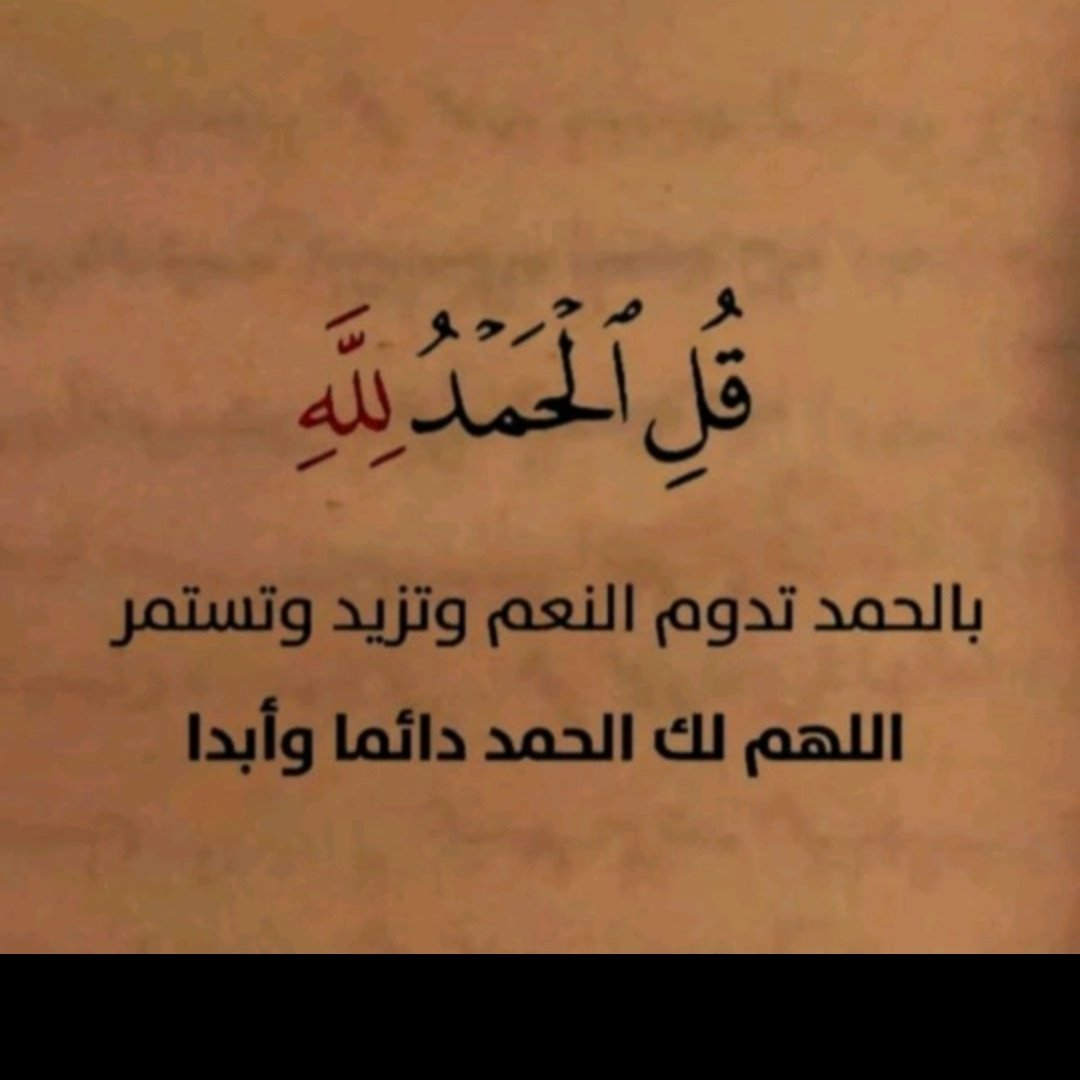 قُلِ ٱلْحَمْدُ لِلَّهِ
بالحمد تدوم النعم وتزيد وتستمر
اللهم لك الحمد دائما وأبدا